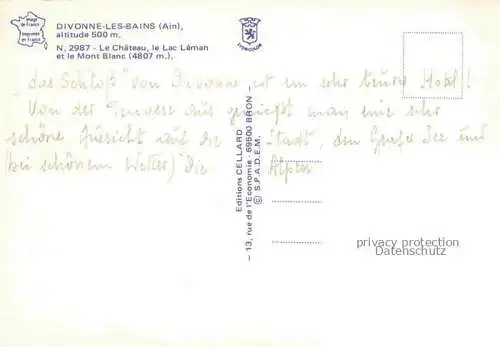 image de France
imprimée en France
DIVONNE-LES-BAINS (Ain),
altitude 500 m.
N. 2987 - Le Château, le Lac Léman
et le Mont Blanc (4807 m.).
LYONCOLOR
„das Schloß" von Divonne ist ein sehr teures Hotel!
Von der Terrasse aus genießt man eine sehr
schöne Aussicht auf die Stadt, den Genfer See und
(bei schönem Wetter) die Alpen
Editions CELLARD
— 13, rue de l'Economie - 69500 BRON —
© S.P.A.D.E.M.
privacy protection
Datenschutz